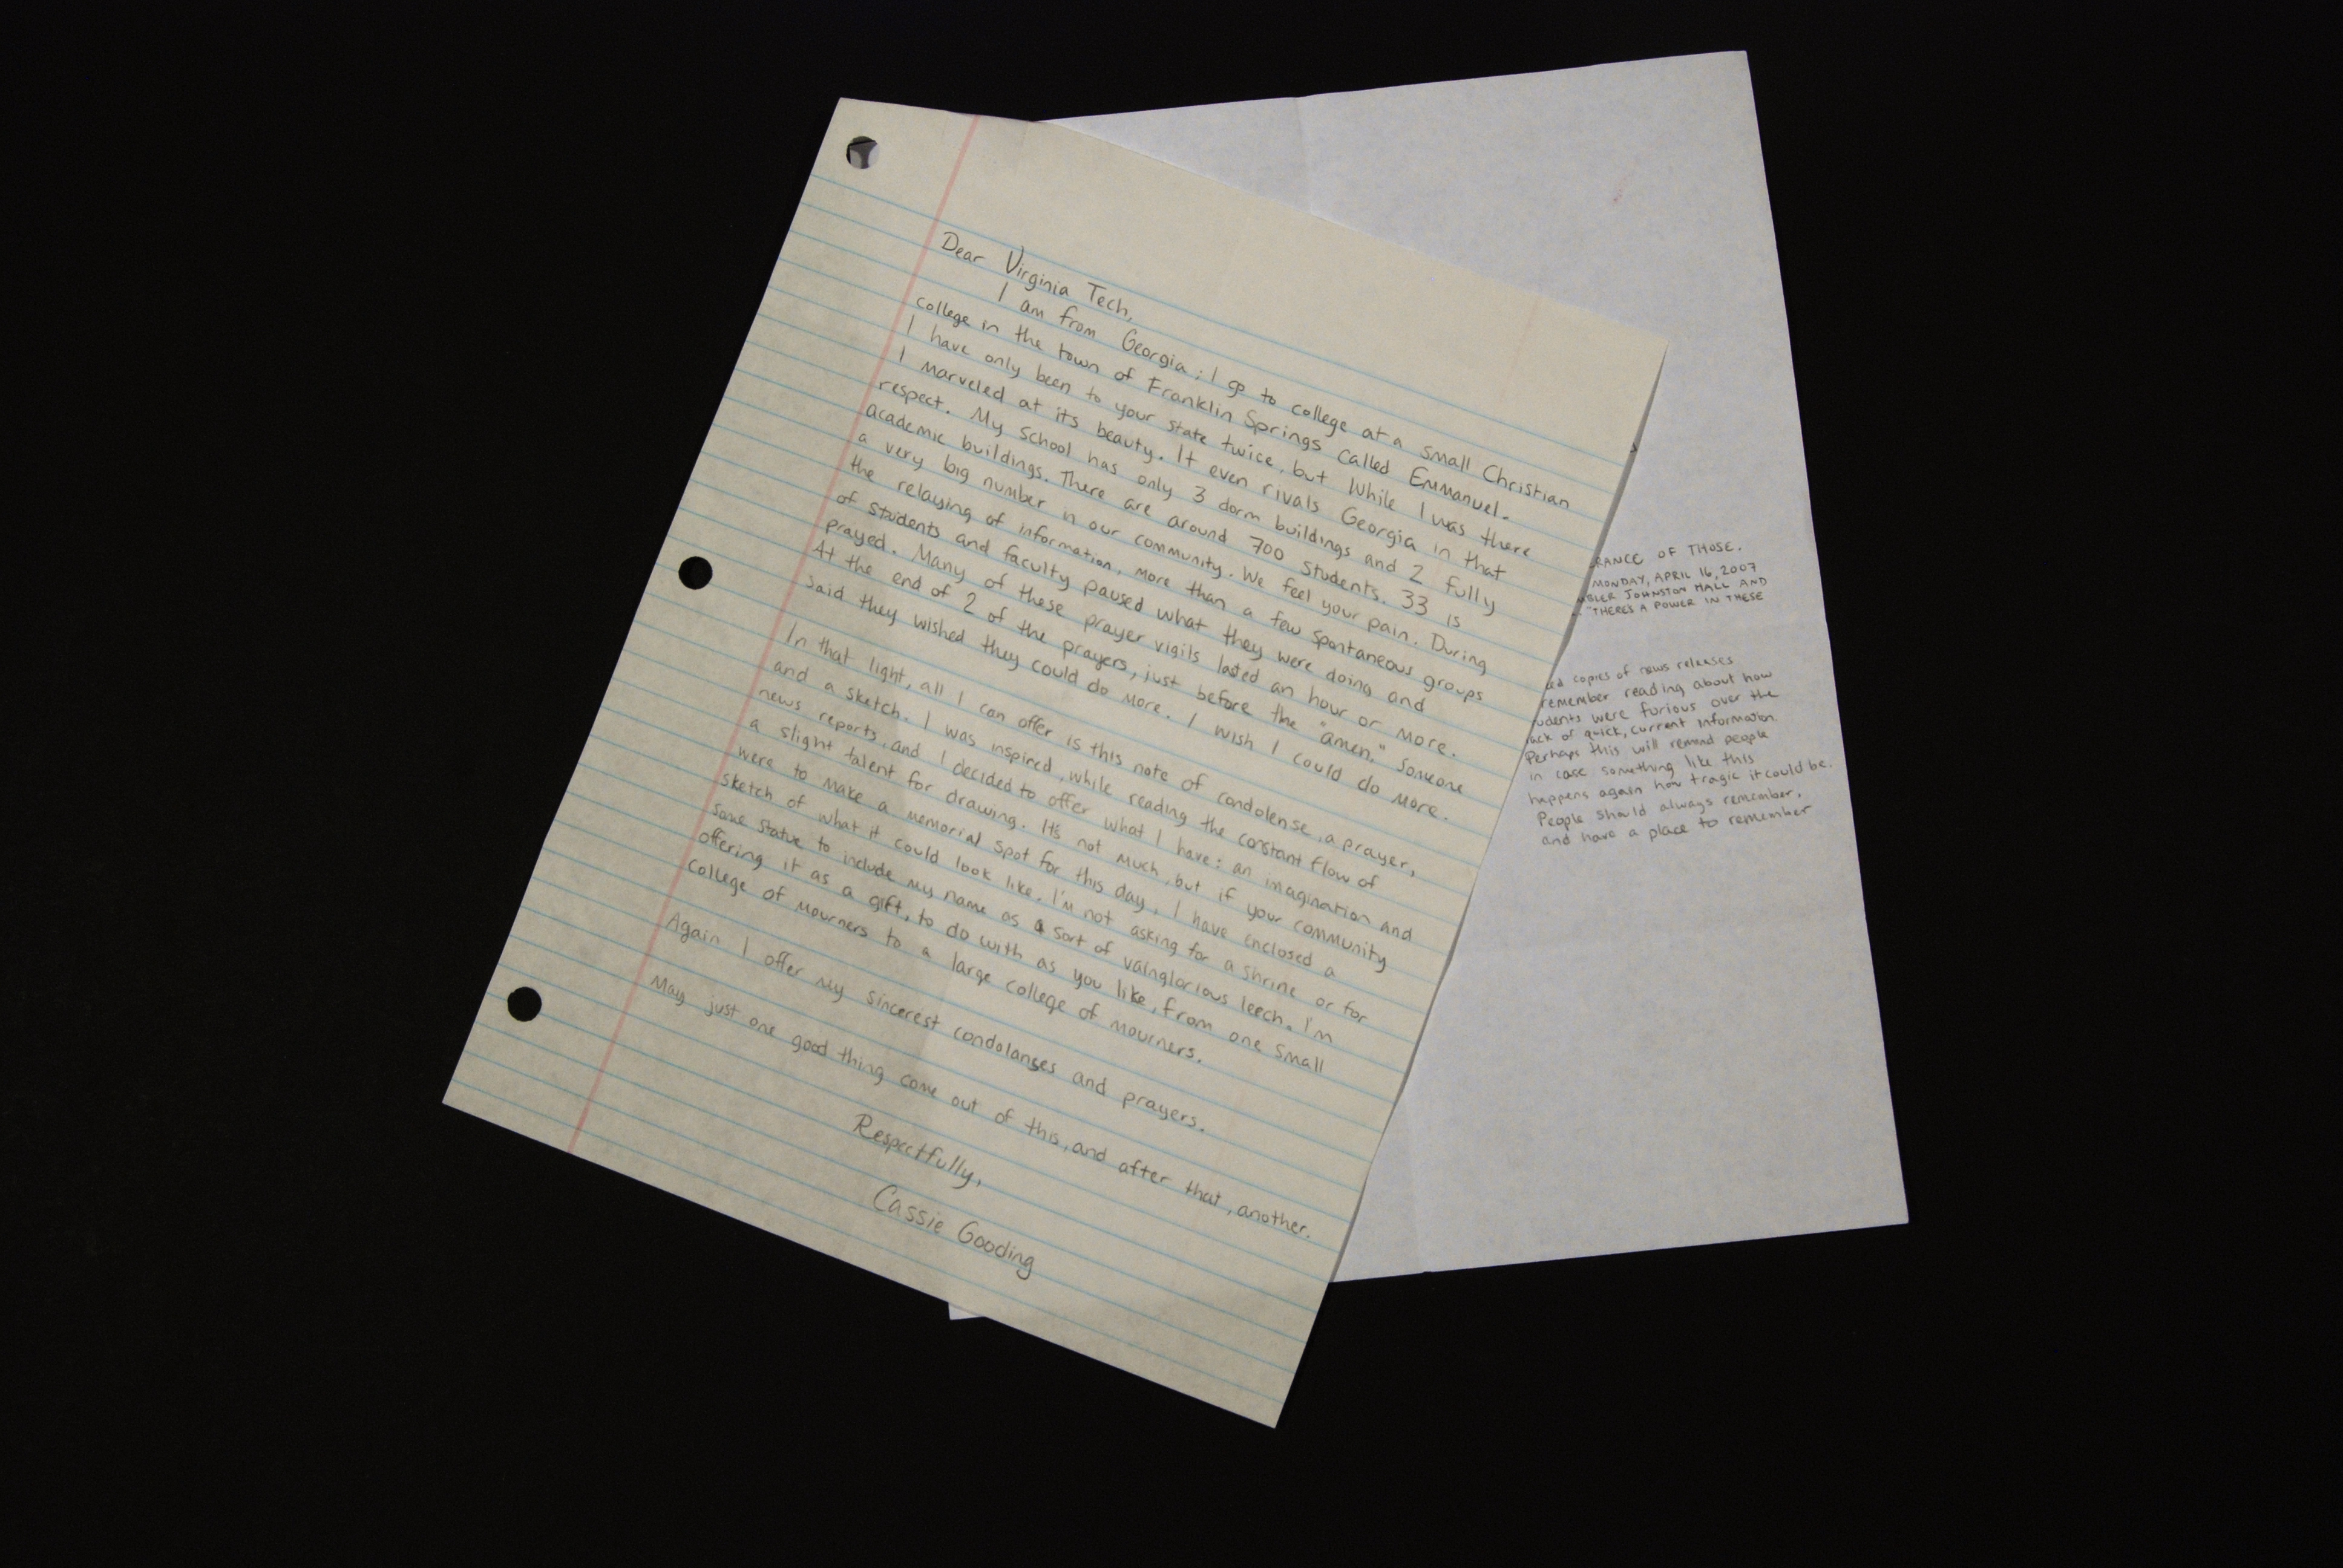 Dear Virginia Tech,
I am from Georgia; I go to college at a small Christian
college in the town of Franklin Springs called Emmanuel.
I have only been to your state twice, but while I was there
I marveled at its beauty. It even rivals Georgia in that
respect. My school has only 3 dorm buildings and 2 fully
academic buildings. There are around 700 students. 33 is
a very big number in our community. We feel your pain. During
the relaying of information, more than a few spontaneous groups
of students and faculty paused what they were doing and
prayed. Many of these prayer vigils lasted an hour or more.
At the end of 2 of the prayers, just before the "amen," someone
said they wished they could do more. I wish I could do more.
In that light, all I can offer is this note of condolense, a prayer,
and a sketch. I was inspired, while reading the constant flow of
news reports, and I decided to offer what I have: an imagination and
a slight talent for drawing. It's not much, but if your community
were to make a memorial spot for this day, I have enclosed a
sketch of what it could look like. I'm not asking for a shrine or for
some statue to include my name as a sort of vainglorious leech. I'm
offering it as a gift, to do with as you like, from one small
college of mourners to a large college of mourners.
Again I offer my sincerest condolanses and prayers.
May just one good thing come out of this, and after that, another.
Respectfully,
Cassie Gooding
RANCE OF THOSE.
MONDAY, APRIL 16, 2007
BLER JOHNSTON HALL AND
"THERE'S A POWER IN THESE
ed copies of news releases
remember reading about how
udents were furious over the
lack of quick, current information.
Perhaps this will remind people
in case something like this
happens again how tragic it could be.
People should always remember,
and have a place to remember